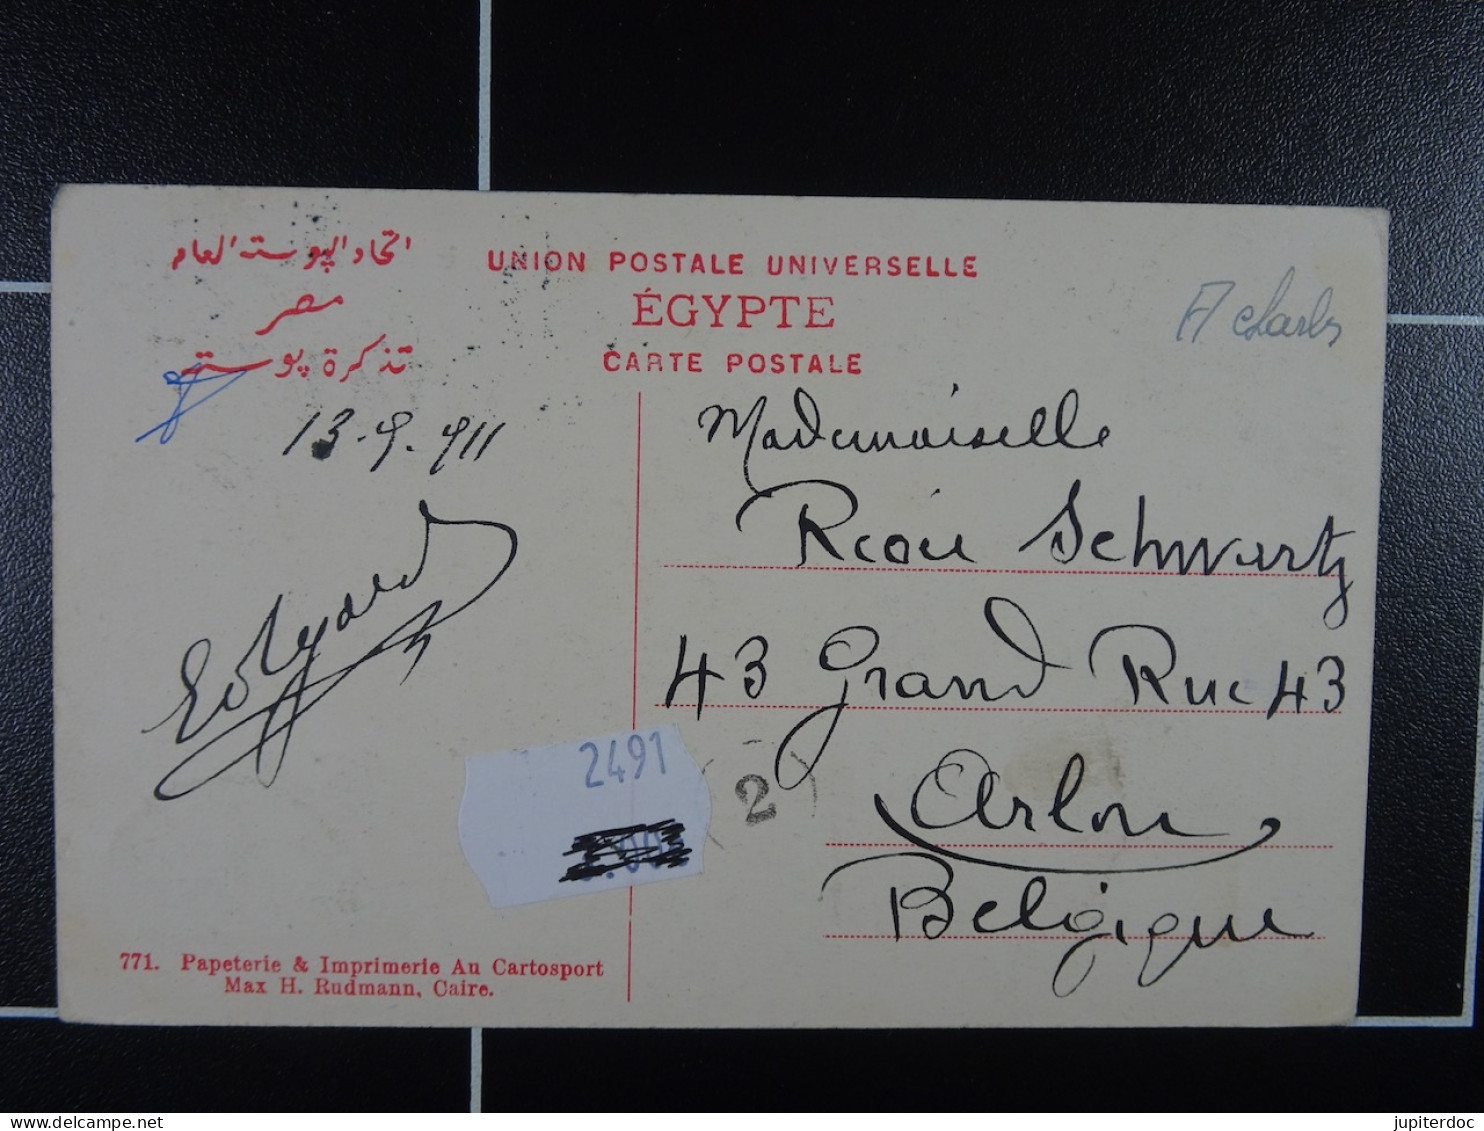 اتحاد الپوسته العام
مصر
تذكرة پوسته
UNION POSTALE UNIVERSELLE
ÉGYPTE
CARTE POSTALE
13-9-911
Edgard
Mademoiselle
Schwartz
43 Grand Rue 43
Arlon
Belgique
2491
2
771. Papeterie & Imprimerie Au Cartosport
Max H. Rudmann, Caire.
jupiterdoc